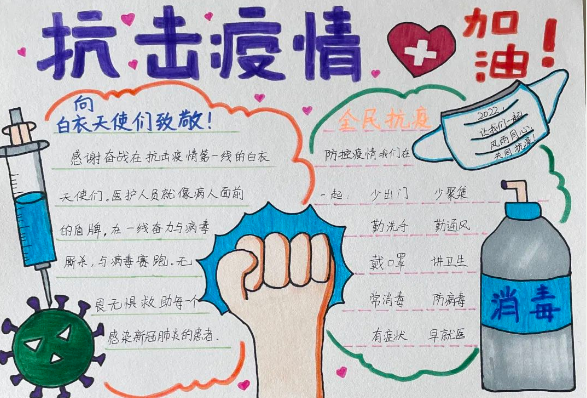 抗击疫情
加油!
向
白衣天使们致敬!
感谢奋战在抗击疫情第一线的白衣
天使们。医护人员就像病人面前
的盾牌,在一线奋力与病毒
厮杀,与病毒赛跑。无
畏无惧救助每个
感染新冠肺炎的患者.
全民抗疫
防控疫情我们在
一起: 少出门 少聚集
勤洗手 勤通风
戴口罩 讲卫生
常消毒 防病毒
有症状 早就医
2022,
让我们一起
风雨同心
共同抗疫!
消毒